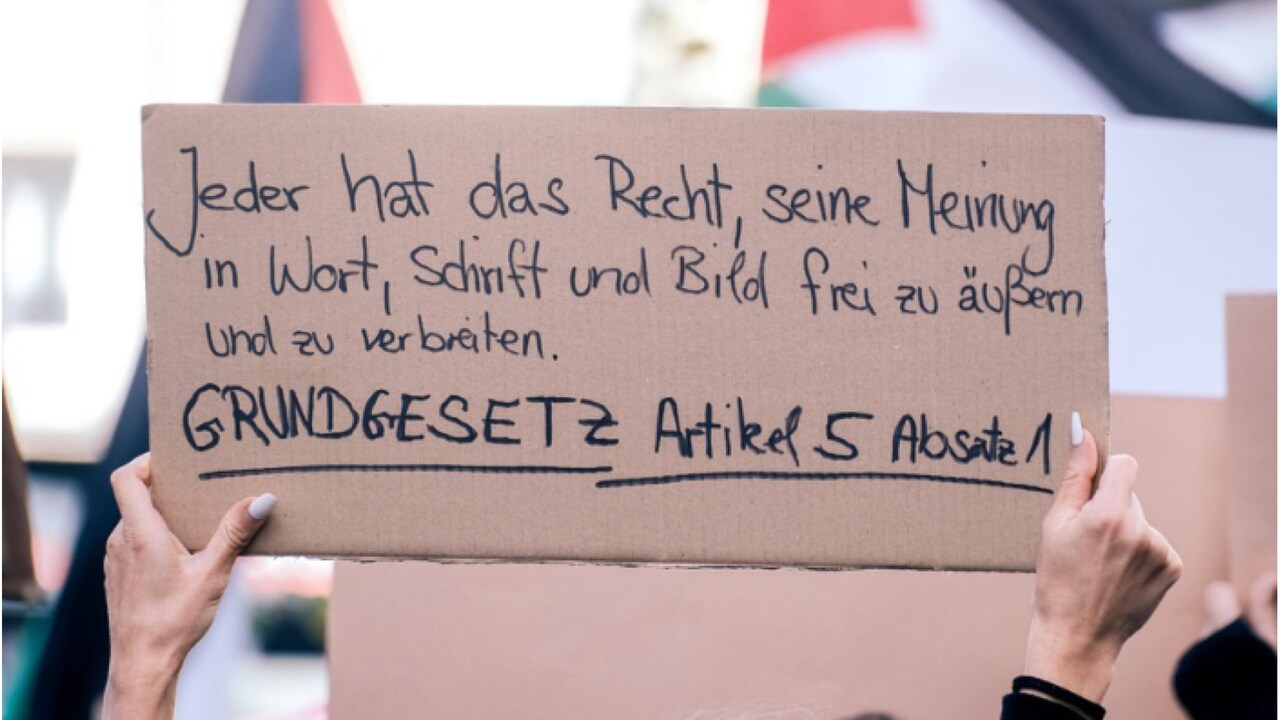 Jeder hat das Recht, seine Meinung
in Wort, Schrift und Bild frei zu äußern
und zu verbreiten.
GRUNDGESETZ Artikel 5 Absatz 1